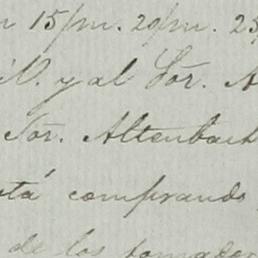 15/m. 20/m. 25
y al Sor. A
Sor. Altenbach
está comprando
de los tomador